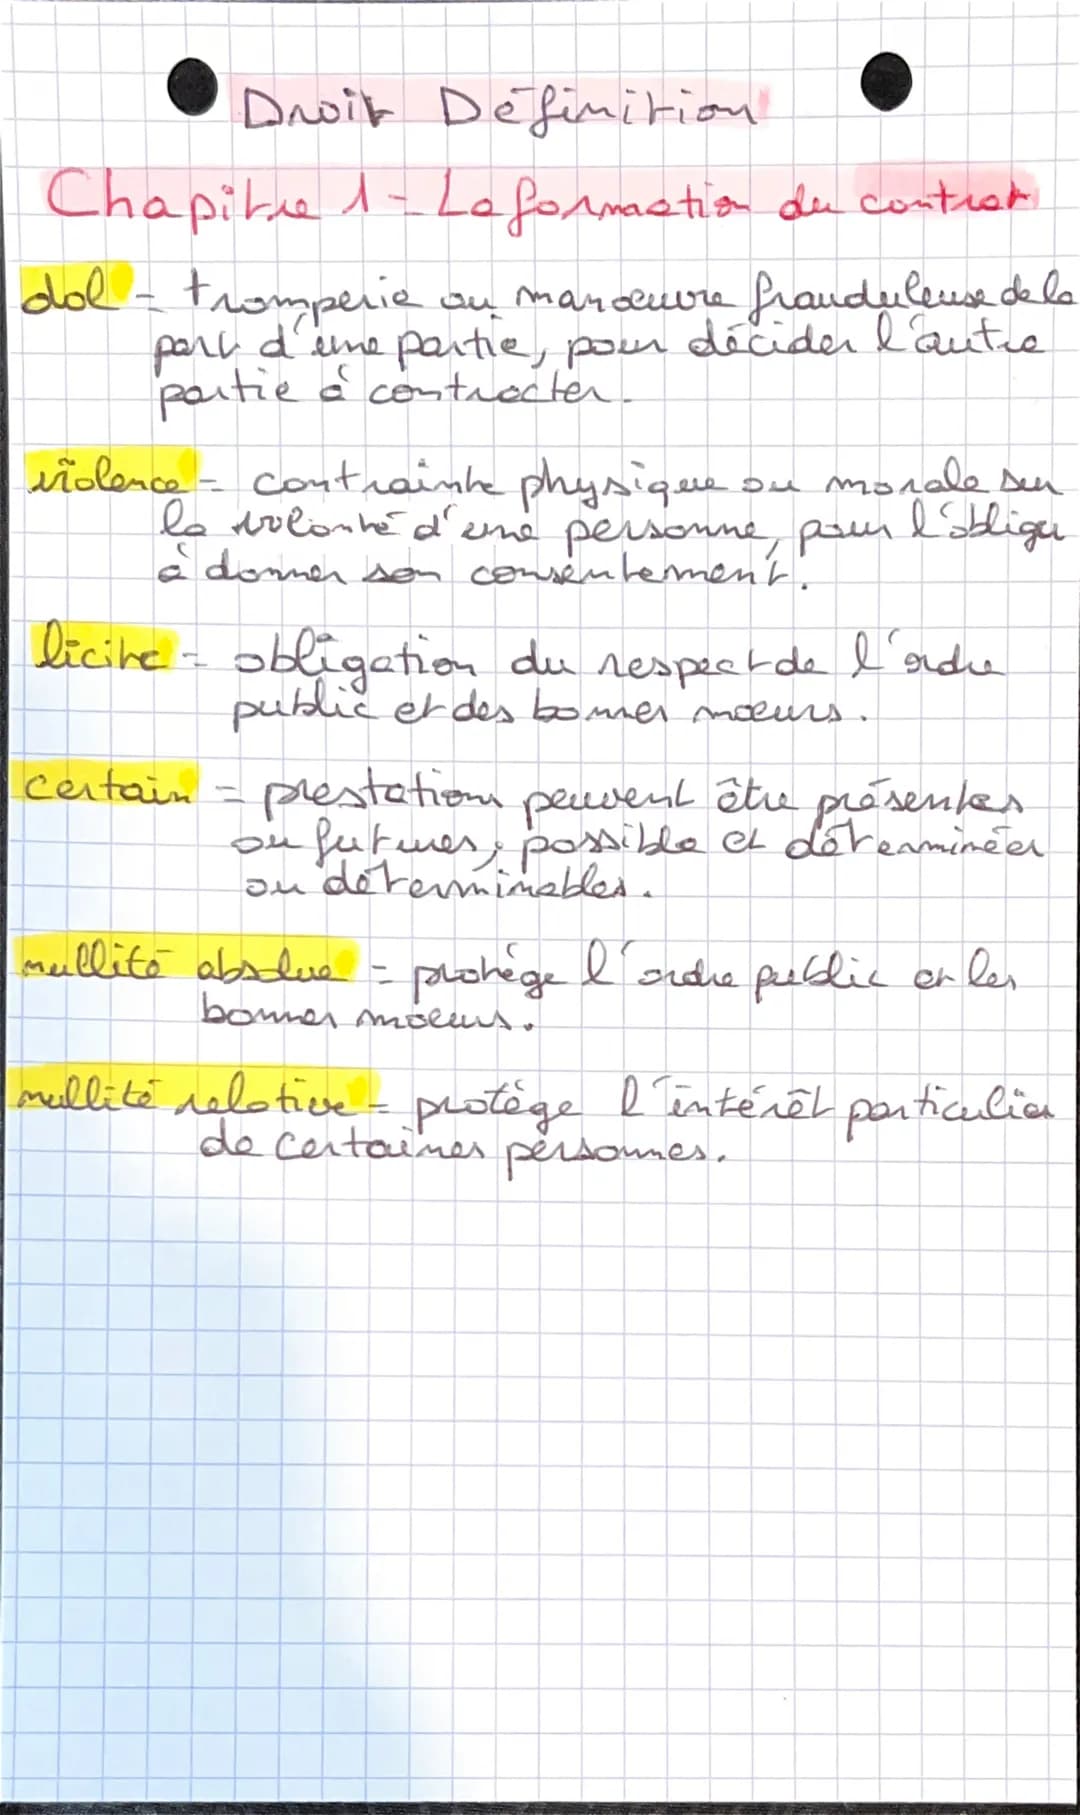 Droit Définition
Chapitre 1 - La formation du contrat
dol = tromperie ou manoeuvre frauduleuse de la
part d'une partie, pour décider l'autre
partie à contracter.
violence = contrainte physique ou morale sur
la volonté d'une personne, pour l'obliger
à donner son consentement.
licite = obligation du respect de l'ordre
public et des bonnes moeurs.
certain = prestations peuvent être présentes
ou futures, possible et déterminées
ou déterminables.
nullité absolue = protège l'ordre public et les
bonnes moeurs.
nullité relative = protège l'intérêt particulier
de certaines personnes.